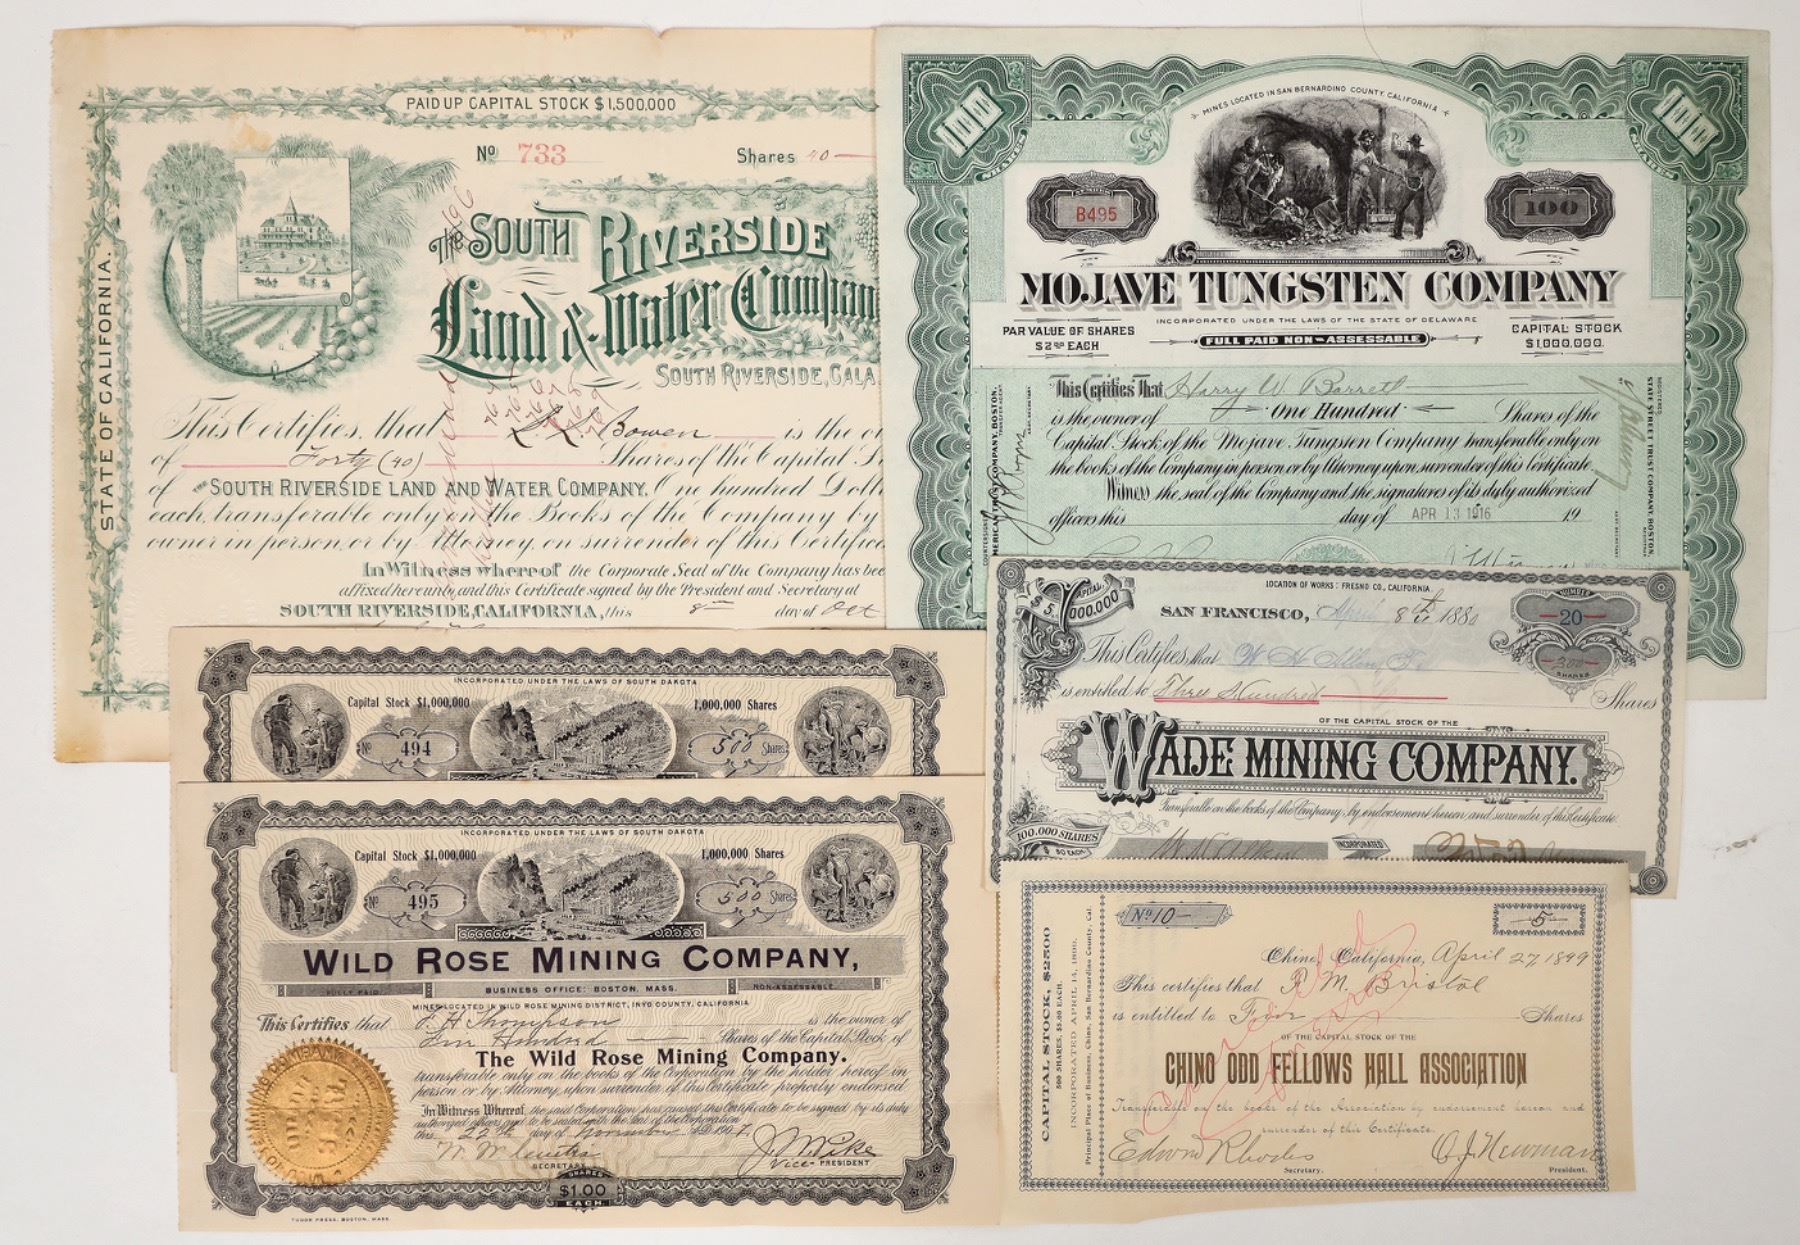 PAID UP CAPITAL STOCK $1,500,000
No 733
Shares 40
STATE OF CALIFORNIA.
The SOUTH RIVERSIDE
Land & Water Compan
SOUTH RIVERSIDE, CALA
This Certifies, that Bowen is the
of Forty (40) Shares of the Capital
of THE SOUTH RIVERSIDE LAND AND WATER COMPANY, One hundred Doll
each, transferable only on the Books of the Company by
owner in person, or by Attorney, on surrender of this Certific
In Witness whereof the Corporate Seal of the Company has bee
affixed hereunto, and this Certificate signed by the President and Secretary at
SOUTH RIVERSIDE, CALIFORNIA, this 8th day of Oct
MINES LOCATED IN SAN BERNARDINO COUNTY, CALIFORNIA
100 SHARES
100 SHARES
B495
100
MOJAVE TUNGSTEN COMPANY
INCORPORATED UNDER THE LAWS OF THE STATE OF DELAWARE
PAR VALUE OF SHARES
$2.00 EACH
FULL PAID NON-ASSESSABLE
CAPITAL STOCK
$1,000,000.
This Certifies That Harry W. Barrett
is the owner of One Hundred Shares of the
Capital Stock of the Mojave Tungsten Company transferable only on
the books of the Company in person or by Attorney upon surrender of this Certificate.
Witness the seal of the Company and the signatures of its duly authorized
officers this day of APR 13 1916 19
STATE STREET TRUST COMPANY, BOSTON,
LOCATION OF WORKS: FRESNO CO., CALIFORNIA
CAPITAL
$5,000,000.
SAN FRANCISCO, April 8th 1880
NUMBER
20
300
SHARES
This Certifies that W H
is entitled to Three Hundred Shares
OF THE CAPITAL STOCK OF THE
WADE MINING COMPANY.
Transferable on the books of the Company, by endorsement hereon and surrender of this Certificate.
100,000 SHARES
$50 EACH
INCORPORATED
INCORPORATED UNDER THE LAWS OF SOUTH DAKOTA
Capital Stock $1,000,000
1,000,000 Shares
No 494
500 Shares
INCORPORATED UNDER THE LAWS OF SOUTH DAKOTA
Capital Stock $1,000,000
1,000,000 Shares
No 495
500 Shares
WILD ROSE MINING COMPANY,
FULLY PAID
BUSINESS OFFICE: BOSTON, MASS.
NON-ASSESSABLE
MINES LOCATED IN WILD ROSE MINING DISTRICT, INYO COUNTY, CALIFORNIA
This Certifies that F. H. Thompson is the owner of
Five Hundred Shares of the Capital Stock of
The Wild Rose Mining Company.
transferable only on the books of the Corporation by the holder hereof in
person or by Attorney upon surrender of this Certificate properly endorsed
In Witness Whereof, the said Corporation has caused this Certificate to be signed by its duly
authorized officers and to be sealed with the Seal of the Corporation
this 22nd day of November A.D. 1907.
SECRETARY
J. W. Pike
Vice-PRESIDENT
SHARES
$1.00
EACH
TUDOR PRESS, BOSTON, MASS.
CAPITAL STOCK, $2500
500 SHARES, $5.00 EACH.
INCORPORATED APRIL 14, 1890.
Principal Place of Business, Chino, San Bernardino County, Cal.
No 10
5
Chino, California, April 27, 1899
This certifies that R. M. Bristol
is entitled to Five Shares
OF THE CAPITAL STOCK OF THE
CHINO ODD FELLOWS HALL ASSOCIATION
Transferable on the books of the Association by endorsement hereon and
surrender of this Certificate.
Edwin Rhodes
Secretary.
O. J. Newman
President.